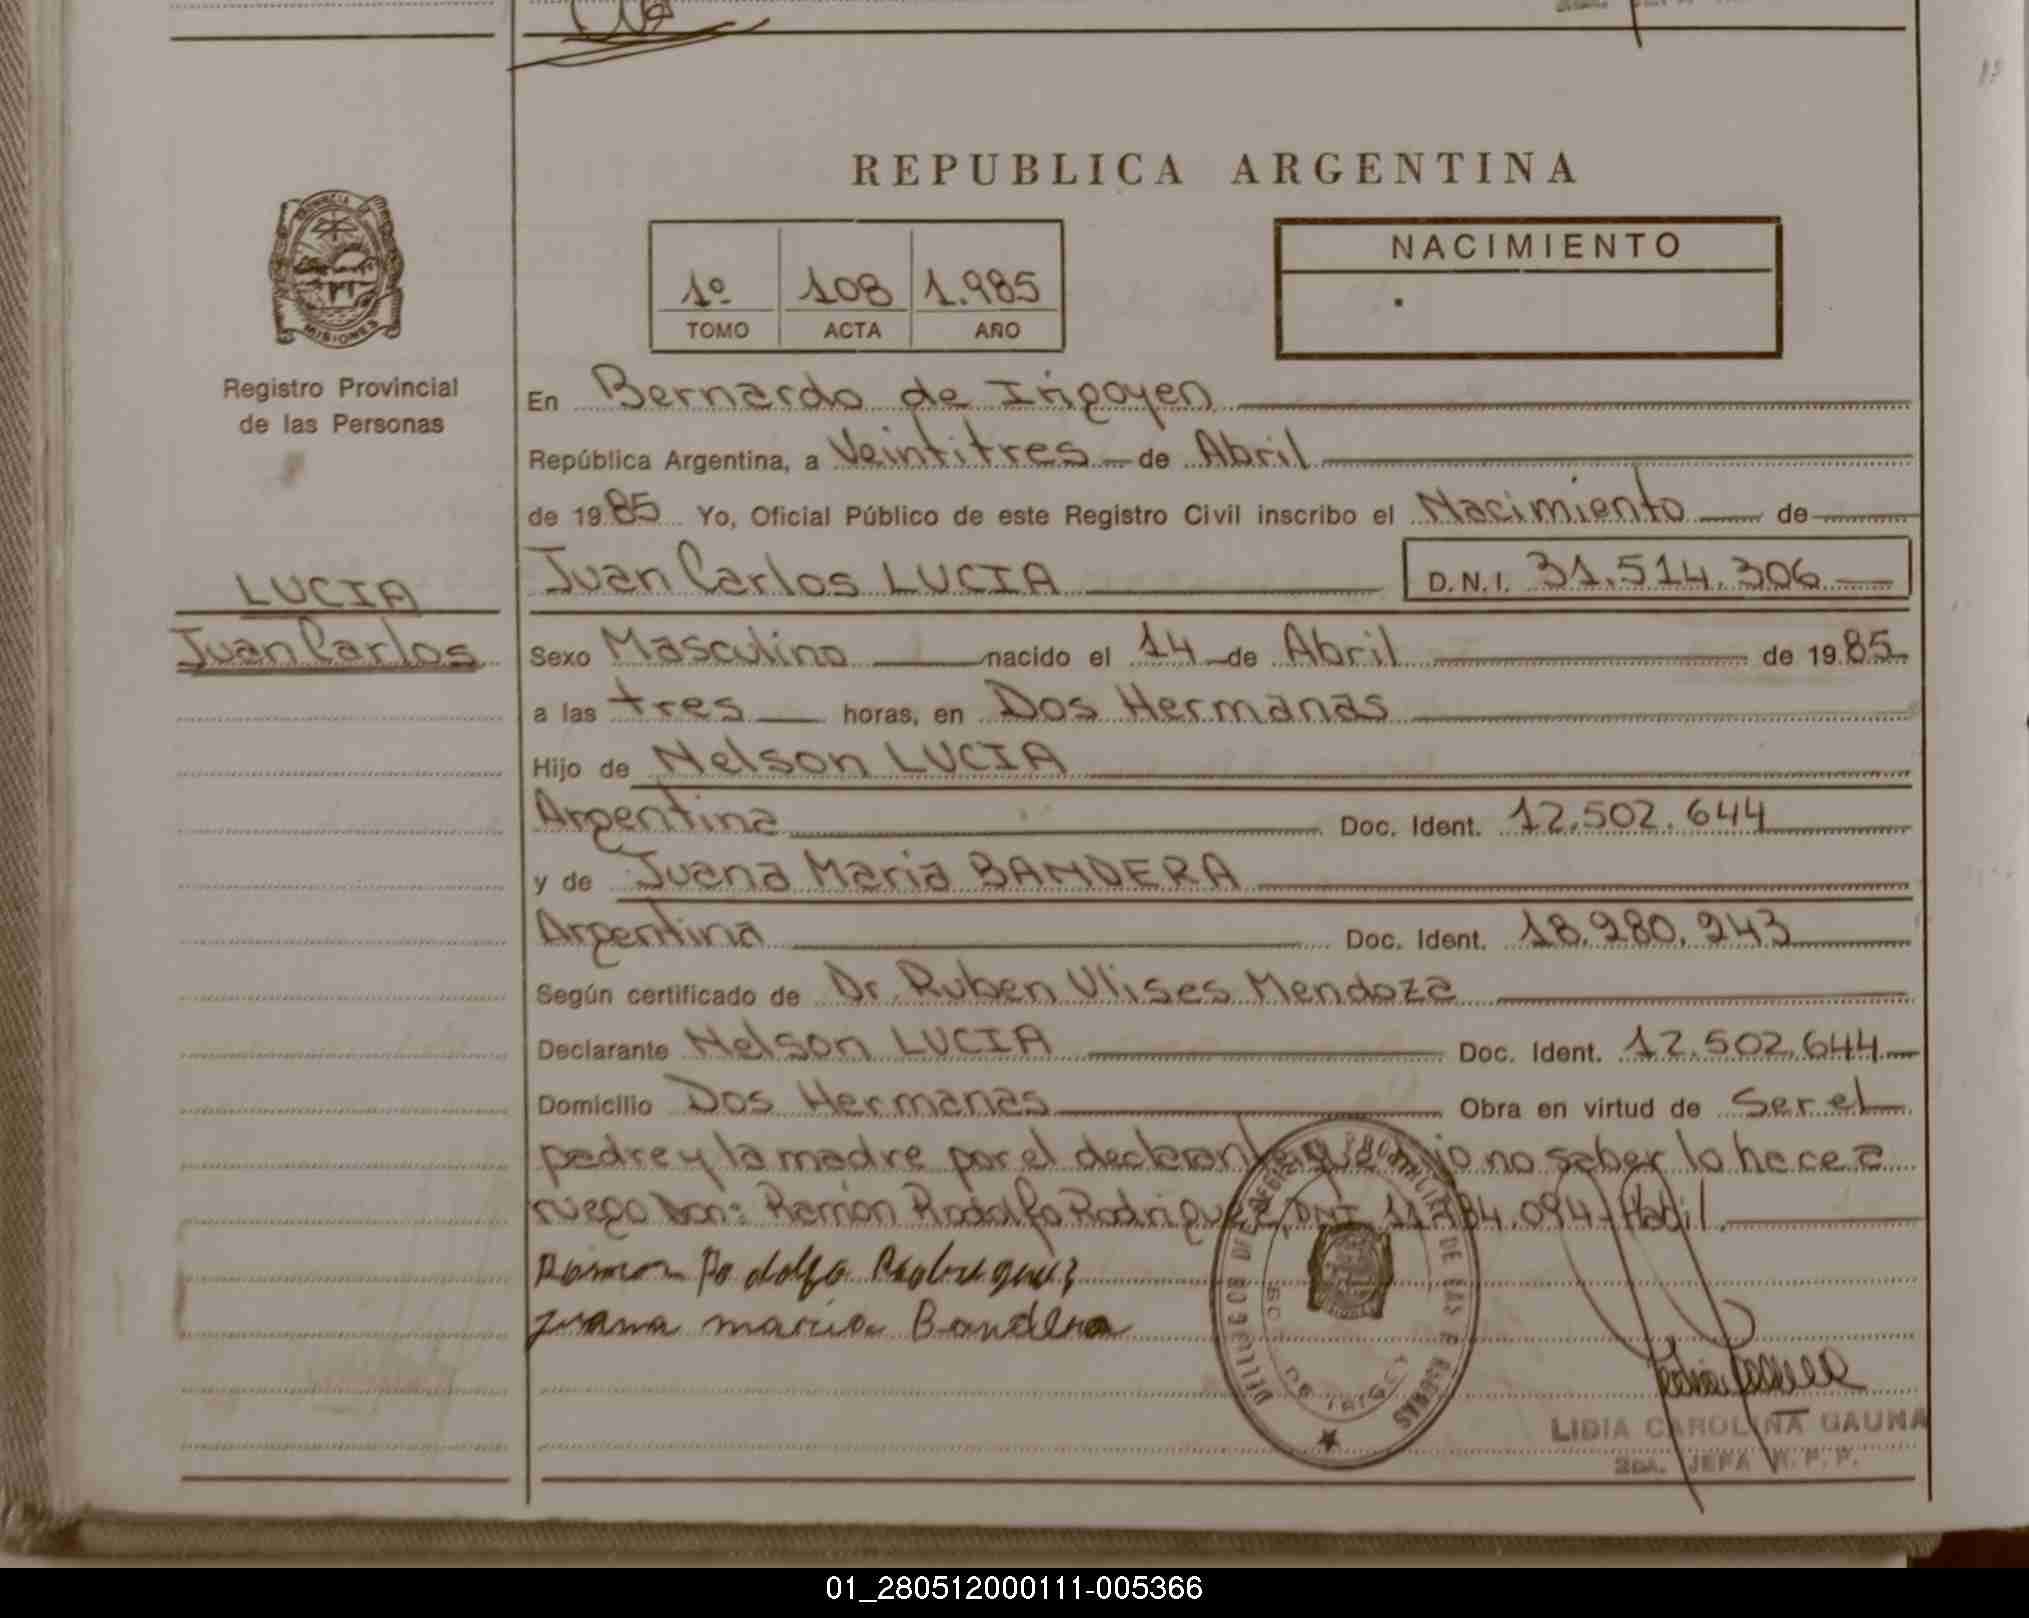 REPUBLICA ARGENTINA
PROVINCIA DE
MISIONES
Registro Provincial
de las Personas
1º 108 1.985
TOMO ACTA AÑO
NACIMIENTO
En Bernardo de Irigoyen
República Argentina, a Veintitres de Abril
de 1985 Yo, Oficial Público de este Registro Civil inscribo el Nacimiento de
Juan Carlos LUCIA D.N.I. 31.514.306
LUCIA
Juan Carlos
Sexo Masculino nacido el 14 de Abril de 1985
a las tres horas, en Dos Hermanas
Hijo de Nelson LUCIA
Argentina Doc. Ident. 12.502.644
y de Juana Maria BANDERA
Argentina Doc. Ident. 18.280.243
Según certificado de Dr Ruben Ulises Mendoza
Declarante Nelson LUCIA Doc. Ident. 12.502.644
Domicilio Dos Hermanas Obra en virtud de Ser el
padre y la madre por el declarante que dijo no saber lo hace a
ruego Don: Ramón Rodolfo Rodriguez DNI Habil.
Ramon Rodolfo Rodriguez
Juana maria Bandera
LIDIA CAROLINA GAUNA
2DA. JEFA R. P. P.
01_280512000111-005366